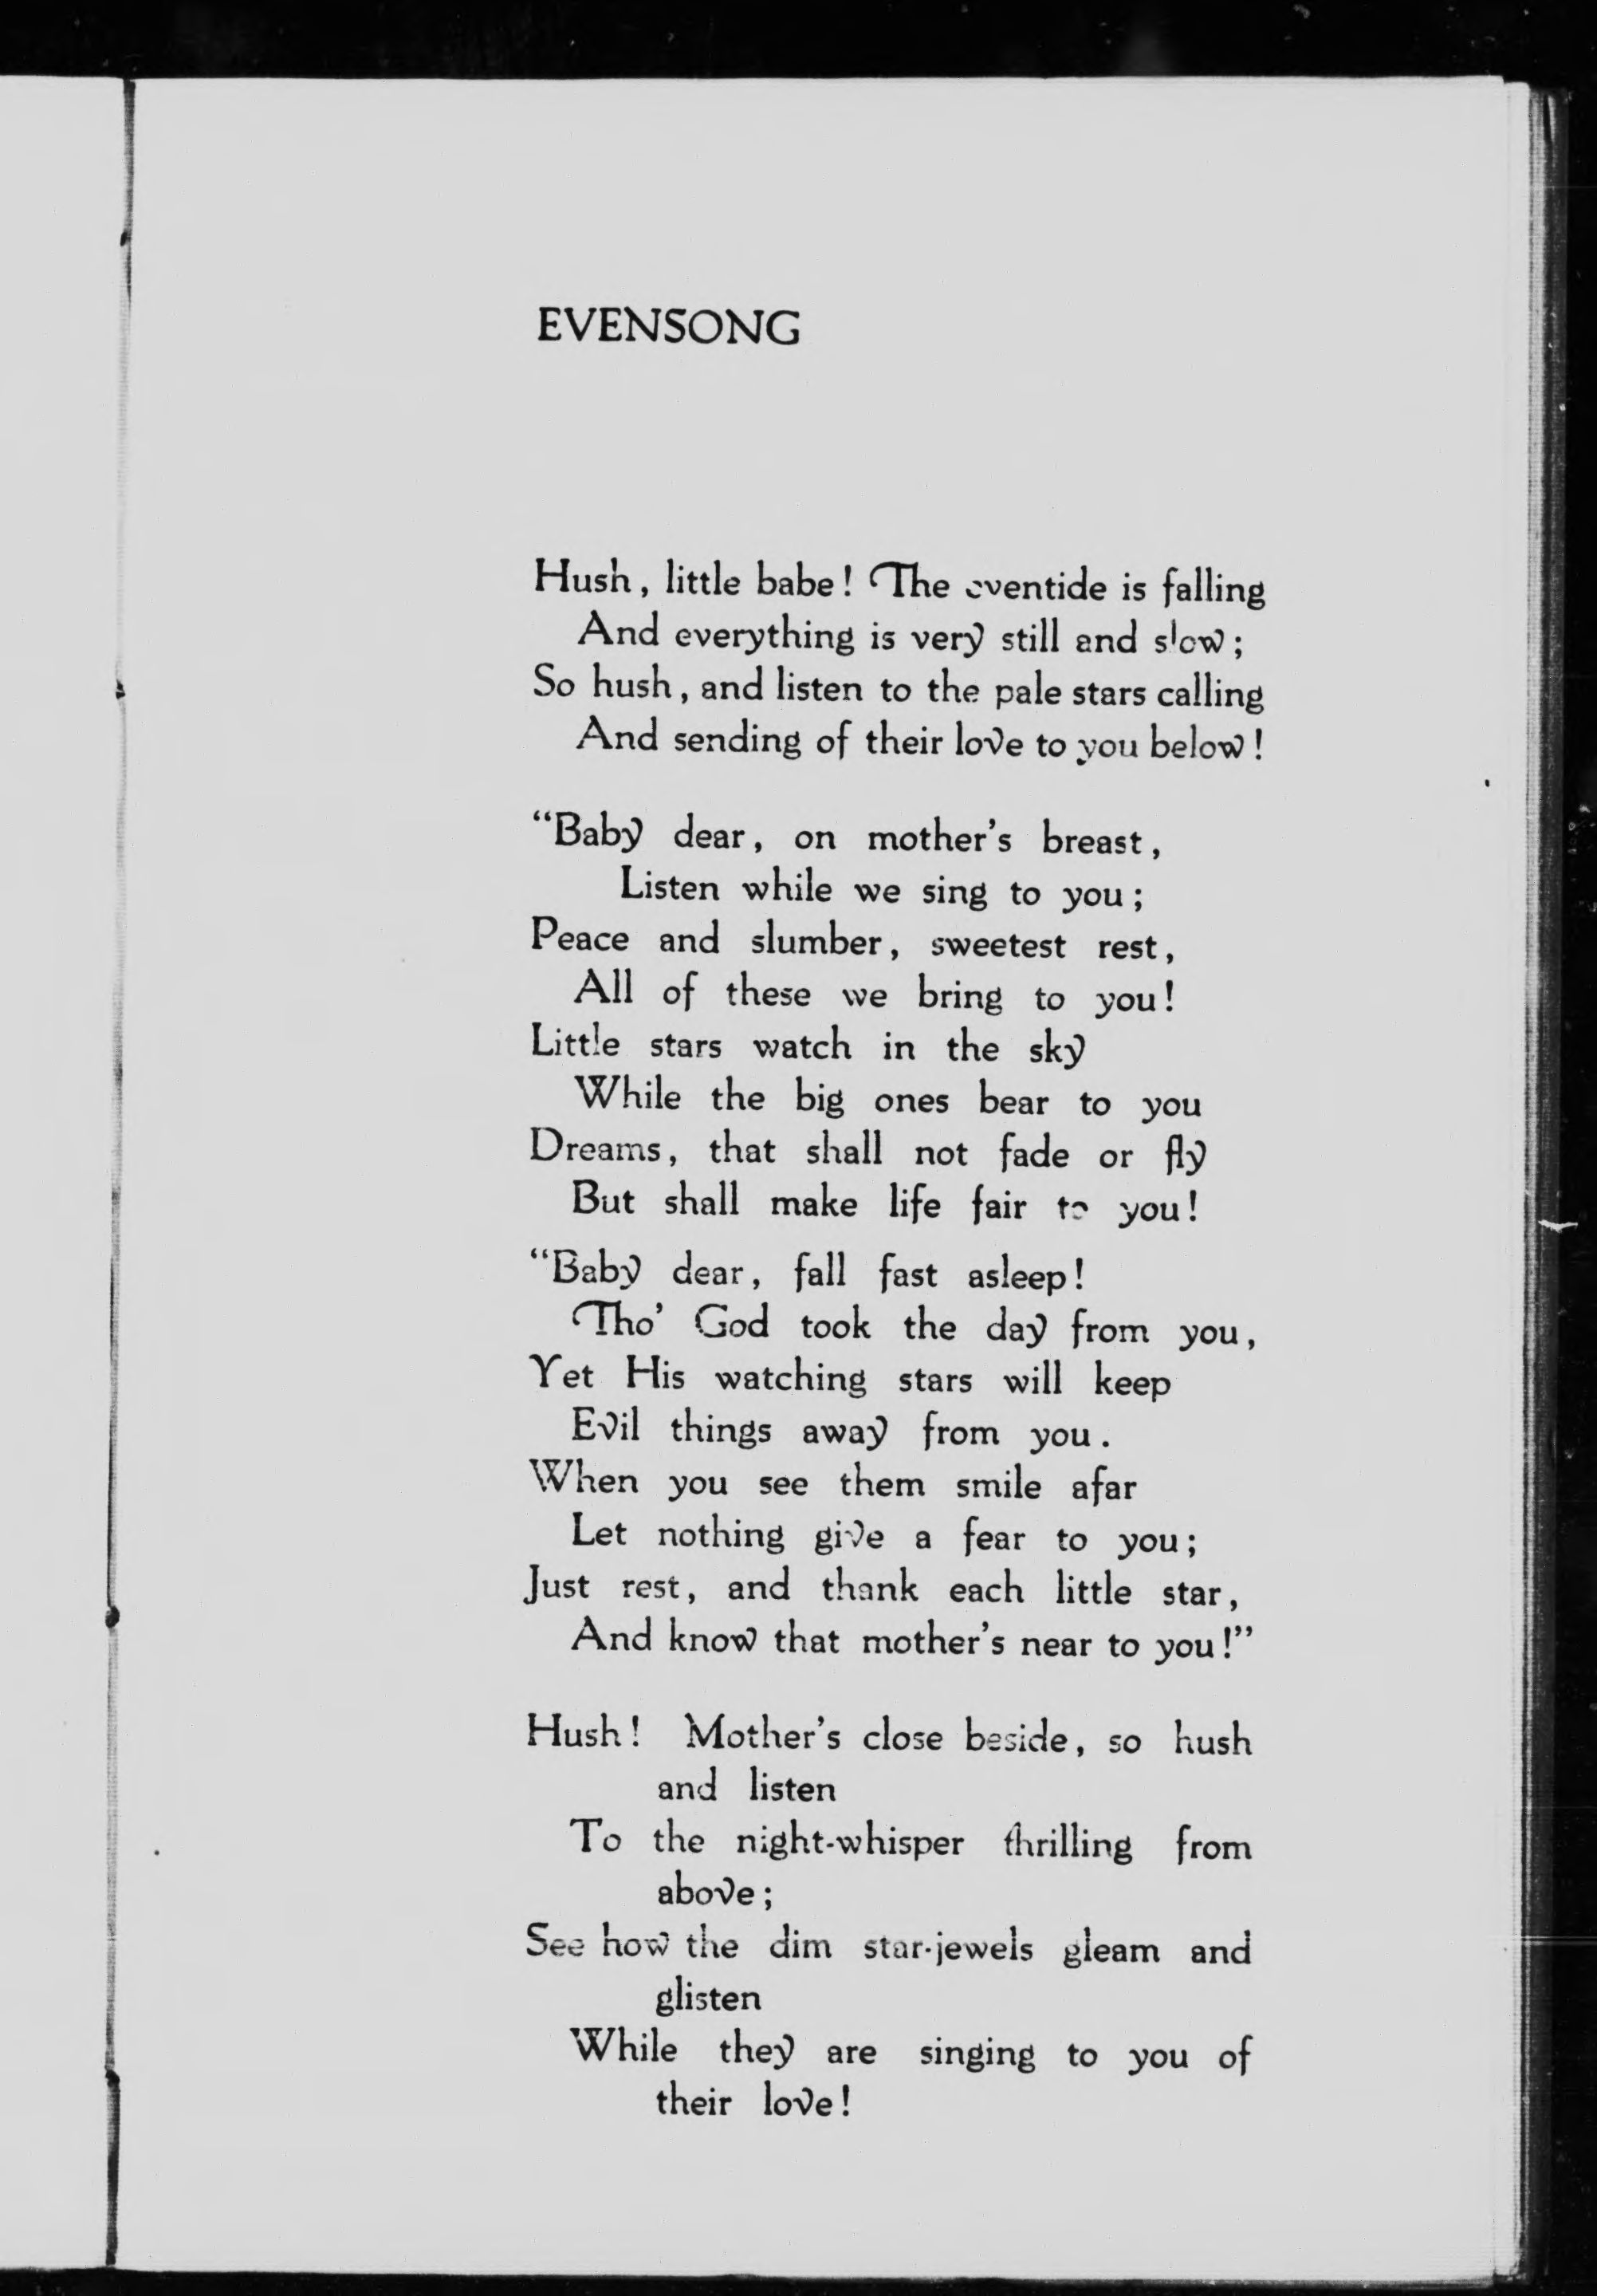 EVENSONG
Hush, little babe! The eventide is falling
And everything is very still and slow;
So hush, and listen to the pale stars calling
And sending of their love to you below!
“Baby dear, on mother’s breast,
Listen while we sing to you;
Peace and slumber, sweetest rest,
All of these we bring to you!
Little stars watch in the sky
While the big ones bear to you
Dreams, that shall not fade or fly
But shall make life fair to you!
“Baby dear, fall fast asleep!
Tho’ God took the day from you,
Yet His watching stars will keep
Evil things away from you.
When you see them smile afar
Let nothing give a fear to you;
Just rest, and thank each little star,
And know that mother’s near to you!”
Hush! Mother’s close beside, so hush
and listen
To the night-whisper thrilling from
above;
See how the dim star-jewels gleam and
glisten
While they are singing to you of
their love!